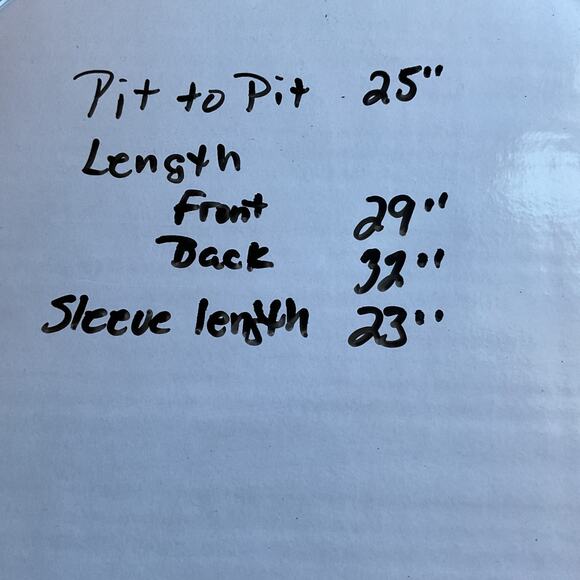 Pit to Pit 25"
Length
Front 29"
Back 32"
Sleeve length 23"